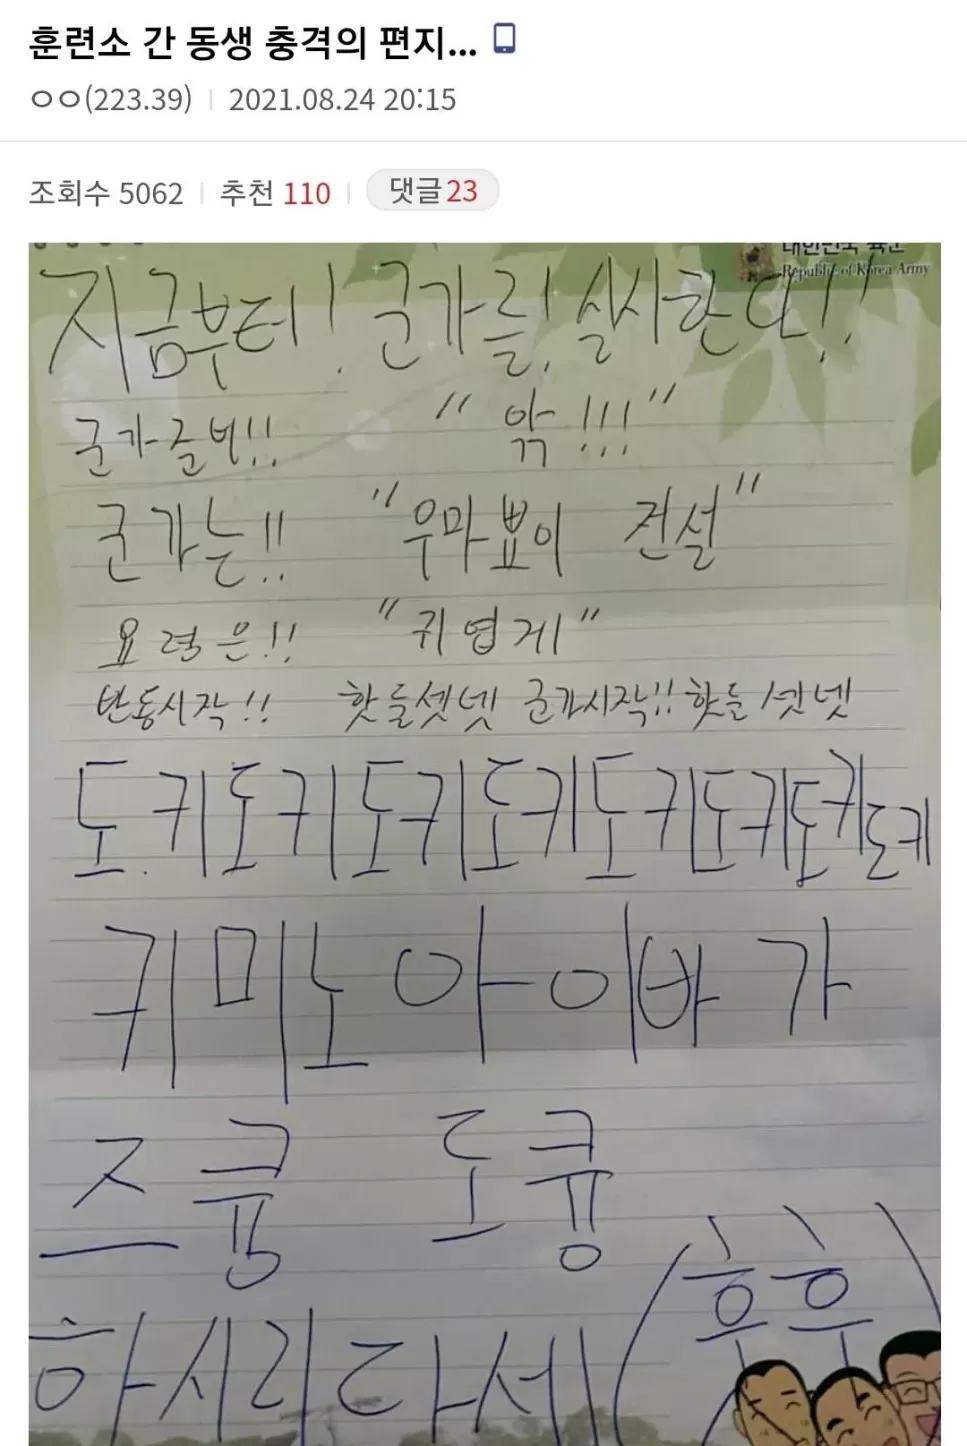 훈련소 간 동생 충격의 편지...
ㅇㅇ(223.39) | 2021.08.24 20:15
조회수 5062 | 추천 110 | 댓글 23
대한민국 육군
Republic of Korea Army
지금부터! 군가를! 실시한다!!
군가준비!! "악!!!"
군가는!! "우마뾰이 전설"
요령은!! "귀엽게"
반동시작!! 핫둘셋넷 군가시작!! 핫둘셋넷
도.키도키도키도키도키도키도키도키
키미노아이바가
즈큥 도큥
하시리다세(후후)